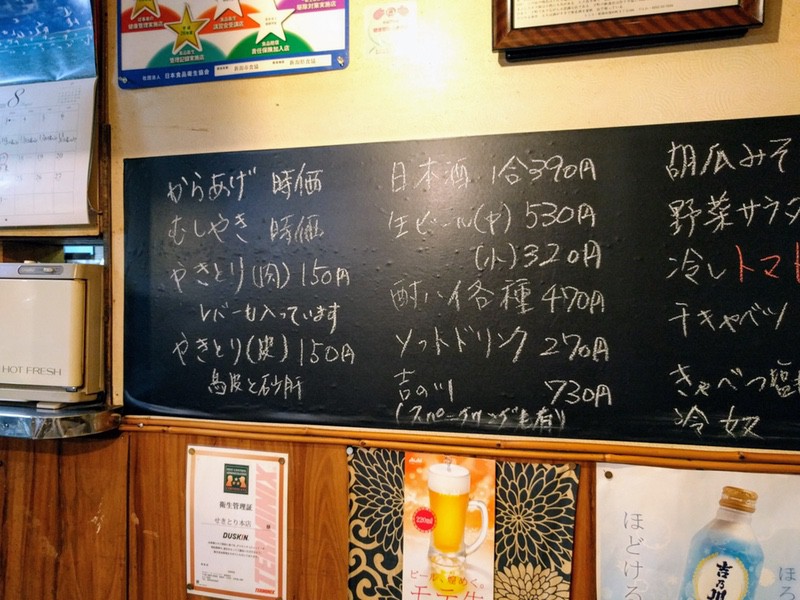 8
社団法人 日本食品衛生協会
からあげ 時価
むしやき 時価
やきとり(肉) 150円
レバーも入っています
やきとり(皮) 150円
鳥皮と砂肝
日本酒 1合390円
生ビール(中) 530円
(小) 320円
酎ハイ各種 470円
ソフトドリンク 270円
吉の川 730円
(スパークリングも有)
胡瓜みそ
野菜サラダ
冷しトマト
千キャベツ
きゃべつ塩
冷奴
HOT FRESH
衛生管理証
せきとり本店 様
DUSKIN
TERMINIX
Asahi
220ml
ビール、煌めく。
ほどける
吉乃川
ほろ